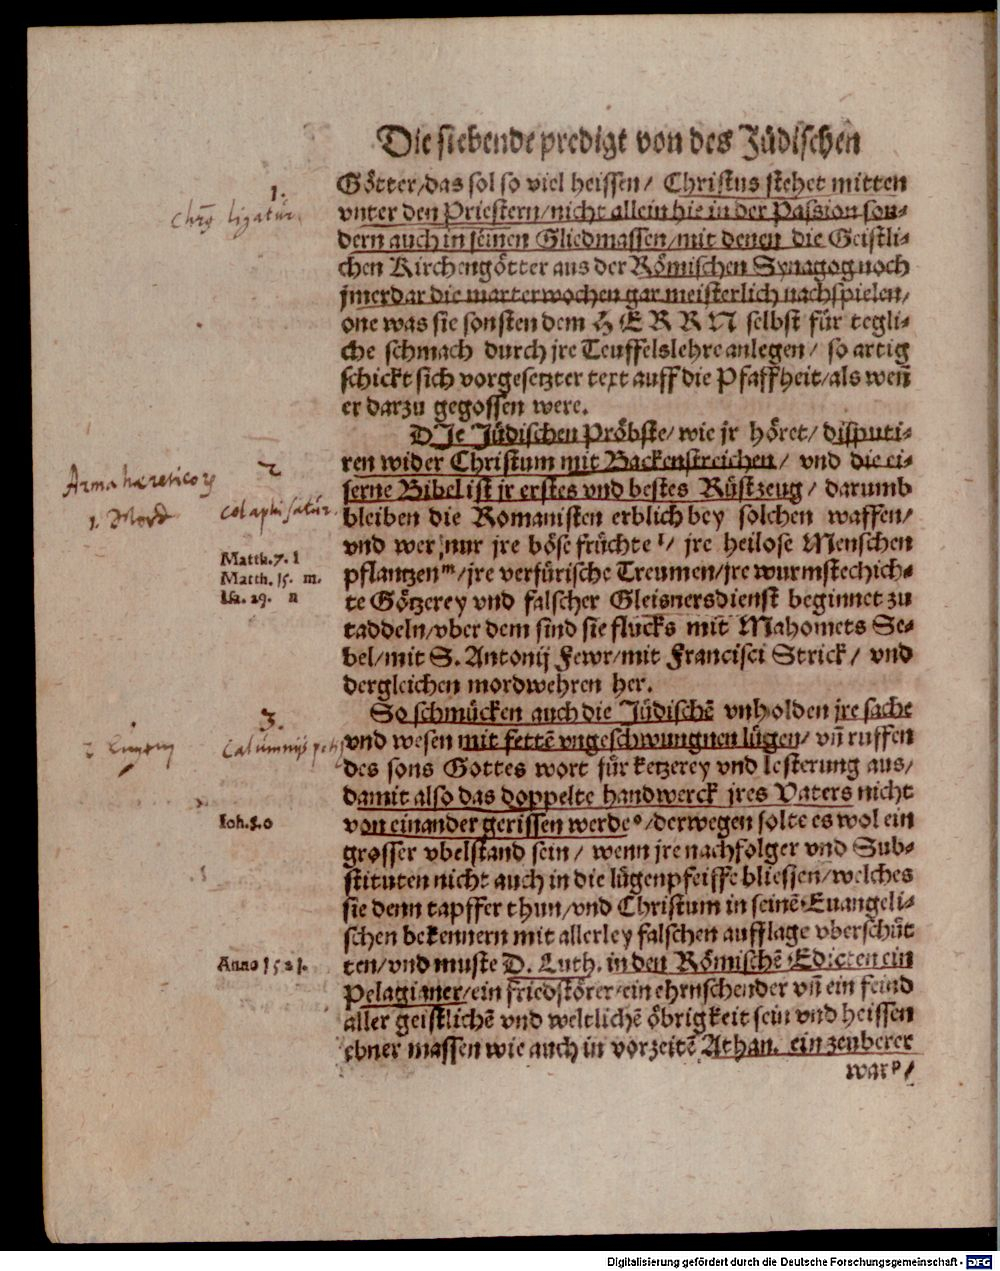 Die siebende predigt von des Jüdischen
Götter/das sol so viel heissen/ Christus stehet mitten
1.
vnter den Priestern/nicht allein hie in der Passion son-
dern auch in seinen Gliedmassen/mit denen die Geistli-
chen Kirchengötter aus der Römischen Synagog noch
jmerdar die marterwochen gar meisterlich nachspielen/
one was sie sonsten dem HERRN selbst für tegli-
che schmach durch jre Teuffelslehre anlegen/ so artig
schickt sich vorgesetzter text auff die Pfaffheit/als weñ
er darzu gegossen were.
DJe Jüdischen Pröbste/wie jr höret/ disputi-
ren wider Christum mit Backenstreichen/ vnd die ei-
2
serne Bibel ist jr erstes vnd bestes Rüstzeug/ darumb
1. Mord
bleiben die Romanisten erblich bey solchen waffen/
vnd wer nur jre böse früchte l/ jre heilose Menschen
Matth. 7. l
pflantzen m/jre verfürische Treumen/jre wurmstechich-
Matth. 15. m.
te Götzerey vnd falscher Gleisnersdienst beginnet zu
Isa. 29. n
taddeln/vber dem sind sie flucks mit Mahomets Se-
bel/mit S. Antonij Fewr/mit Francisci Strick/ vnd
dergleichen mordwehren her.
So schmücken auch die Jüdischẽ vnholden jre sache
3.
vnd wesen mit fettẽ vngeschwungnen lügen/ vñ ruffen
des sons Gottes wort für ketzerey vnd lesterung aus/
damit also das doppelte handwerck jres Vaters nicht
von einander gerissen werde o/derwegen solte es wol ein
Ioh. 8. o
grosser vbelstand sein/ wenn jre nachfolger vnd Sub-
stituten nicht auch in die lügenpfeiffe bliessen/welches
sie denn tapffer thun/vnd Christum in seinẽ Euangeli-
schen bekennern mit allerley falschen aufflage vberschüt
ten/vnd muste D. Luth. in den Römischẽ Edicten ein
Anno 1521.
Pelagianer/ein friedstörer/ein ehrnschender vñ ein feind
aller geistlichẽ vnd weltlichẽ öbrigkeit sein vnd heissen
ebner massen wie auch in vorzeitẽ Athan. ein zeuberer
war p/
Digitalisierung gefördert durch die Deutsche Forschungsgemeinschaft - DFG